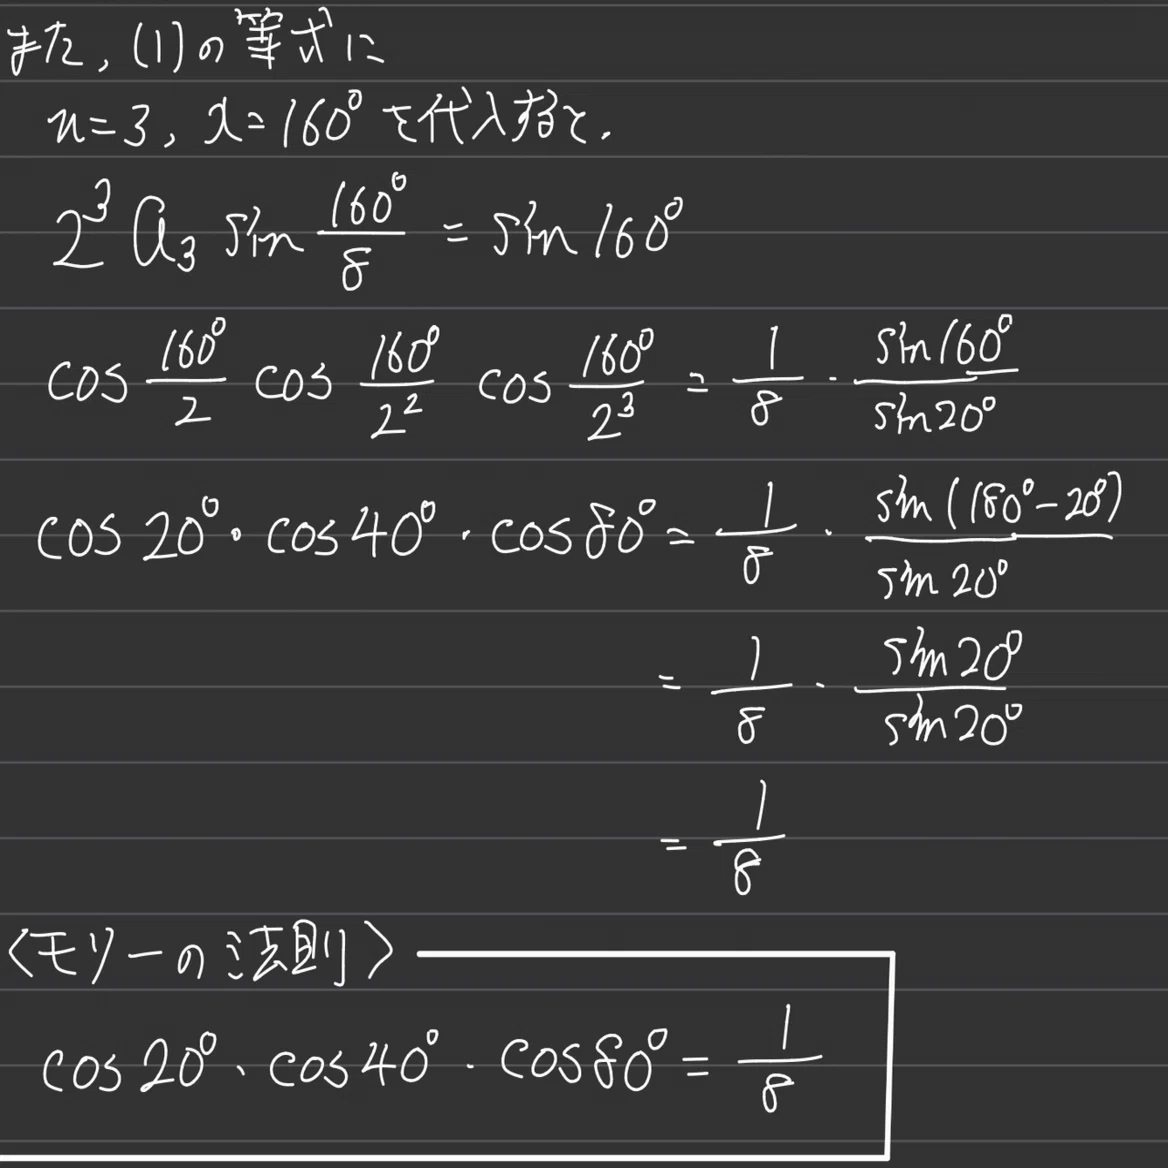 また, (1)の等式に
n=3, x=160°を代入すると.
2³ a₃ sin 160°/8 = sin 160°
cos 160°/2 cos 160°/2² cos 160°/2³ = 1/8 · sin160°/sin20°
cos 20° · cos 40° · cos 80° = 1/8 · sin(180°-20°)/sin 20°
= 1/8 · sin 20°/sin 20°
= 1/8
〈モリーの法則〉
cos 20° · cos 40° · cos 80° = 1/8